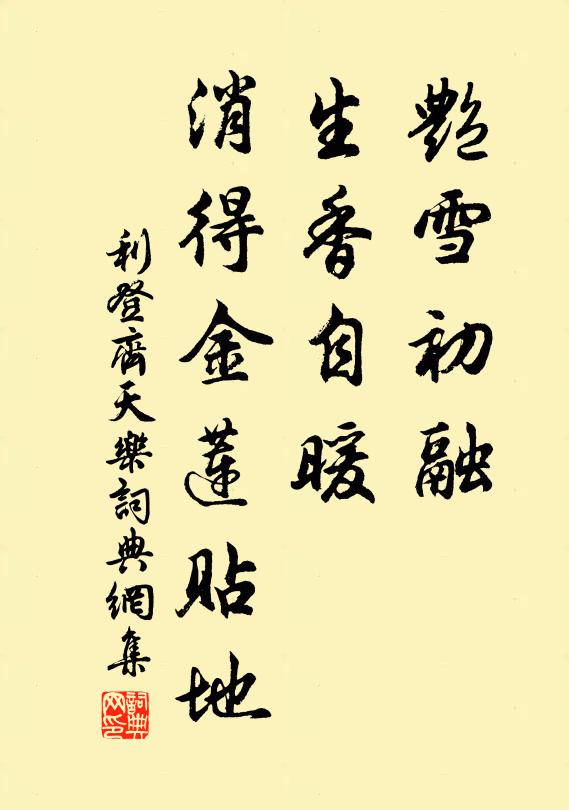 艷雪初融
生香自暖
消得金蓮貼地
利登齊天樂詞典網集
詞典网印